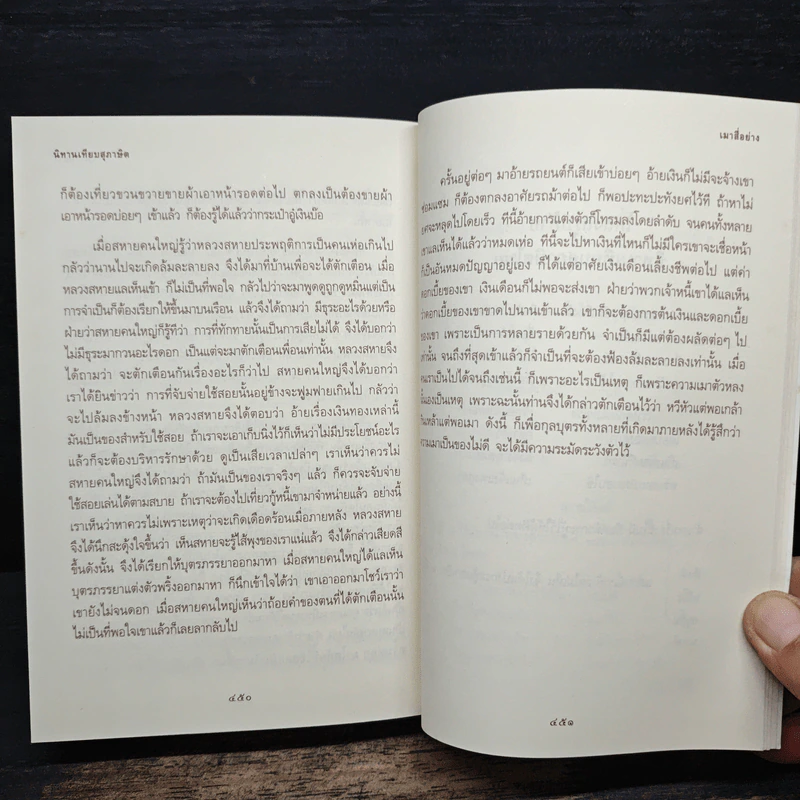 นิทานเทียบสุภาษิต
ก็ต้องเที่ยวชวนขวายขายผ้าเอาหน้ารอดต่อไป ตกลงเป็นต้องขายผ้า
เอาหน้ารอดบ่อยๆ เข้าแล้ว ก็ต้องรู้ได้แล้วว่ากระเป๋าอู่เงินบ๊อ
เมื่อสหายคนใหญ่รู้ว่าหลวงสหายประพฤติการเป็นคนเห่อเกินไป
กลัวว่านานไปจะเกิดล้มละลายลง จึงได้มาที่บ้านเพื่อจะได้ตักเตือน เมื่อ
หลวงสหายแลเห็นเข้า ก็ไม่เป็นที่พอใจ กลัวไปว่าจะมาพูดดูถูกดูหมิ่นแต่เป็น
การจำเป็นก็ต้องเรียกให้ขึ้นมาบนเรือน แล้วจึงได้ถามว่า มีธุระอะไรด้วยหรือ
ฝ่ายว่าสหายคนใหญ่ก็รู้ทีว่า การที่ทักทายนั้นเป็นการเสียไม่ได้ จึงได้บอกว่า
ไม่มีธุระมากวนอะไรดอก เป็นแต่จะมาตักเตือนเพื่อนเท่านั้น หลวงสหายจึง
ได้ถามว่า จะตักเตือนกันเรื่องอะไรก็ว่าไป สหายคนใหญ่จึงได้บอกว่า
เราได้ยินข่าวว่า การที่จับจ่ายใช้สอยนั้นอยู่ข้างจะฟูมฟายเกินไป กลัวว่า
จะไปล้มลงข้างหน้า หลวงสหายจึงได้ตอบว่า อ้ายเรื่องเงินทองเหล่านี้
มันเป็นของสำหรับใช้สอย ถ้าเราจะเอาเก็บนิ่งไว้ก็เห็นว่าไม่มีประโยชน์อะไร
แล้วก็จะต้องบริหารรักษาด้วย ดูเป็นเสียเวลาเปล่าๆ เราเห็นว่าควรไม่
สหายคนใหญ่จึงได้ถามว่า ถ้ามันเป็นของเราจริงๆ แล้ว ก็ควรจะจับจ่าย
ใช้สอยเล่นได้ตามสบาย ถ้าเราจะต้องไปเที่ยวกู้หนี้เขามาจำหน่ายแล้ว อย่างนี้
เราเห็นว่าหาควรไม่เพราะเหตุว่าจะเกิดเดือดร้อนเมื่อภายหลัง หลวงสหาย
จึงได้นึกสะดุ้งใจขึ้นว่า เห็นสหายจะรู้ไส้พุงของเราแน่แล้ว จึงได้กล่าวเสียดสี
ขึ้นดังนั้น จึงได้เรียกให้บุตรภรรยาออกมาหา เมื่อสหายคนใหญ่ได้แลเห็น
บุตรภรรยาแต่งตัวพริ้งออกมาหา ก็นึกเข้าใจได้ว่า เขาเอาออกมาโชว์เราว่า
เขายังไม่จนดอก เมื่อสหายคนใหญ่เห็นว่าถ้อยคำของตนที่ได้ตักเตือนนั้น
ไม่เป็นที่พอใจเขาแล้วก็เลยลากลับไป
๔๕๐
เมาสี่อย่าง
ครั้นอยู่ต่อๆ มาอ้ายรถยนต์ก็เสียเข้าบ่อยๆ อ้ายเงินก็ไม่มีจะจ้างเขา
ซ่อมแซม ก็ต้องตกลงอาศัยรถม้าต่อไป ก็พอปะทะปะทังยศไว้ที ถ้าหาไม่
ยศจะหลุดไปโดยเร็ว ทีนี้อ้ายการแต่งตัวก็โทรมลงโดยลำดับ จนคนทั้งหลาย
เขาแลเห็นได้แล้วว่าหมดเห่อ ทีนี้จะไปหาเงินที่ไหนก็ไม่มีใครเขาจะเชื่อหน้า
ก็เป็นอันหมดปัญญาอยู่เอง ก็ได้แต่อาศัยเงินเดือนเลี้ยงชีพต่อไป แต่ค่า
ดอกเบี้ยของเขา เงินเดือนก็ไม่พอจะส่งเขา ฝ่ายว่าพวกเจ้าหนี้เขาได้แลเห็น
ว่าดอกเบี้ยของเขาขาดไปนานเข้าแล้ว เขาก็จะต้องการต้นเงินและดอกเบี้ย
ของเขา เพราะเป็นการหลายรายด้วยกัน จำเป็นก็มีแต่ต้องผลัดต่อๆ ไป
เท่านั้น จนถึงที่สุดเข้าแล้วก็จำเป็นที่จะต้องฟ้องล้มละลายลงเท่านั้น เมื่อ
คนเราเป็นไปได้จนถึงเช่นนี้ ก็เพราะอะไรเป็นเหตุ ก็เพราะความเมาตัวหลง
นี้เองเป็นเหตุ เพราะฉะนั้นท่านจึงได้กล่าวตักเตือนไว้ว่า หวีหัวแต่พอเกล้า
กินเหล้าแต่พอเมา ดังนี้ ก็เพื่อกุลบุตรทั้งหลายที่เกิดมาภายหลังได้รู้สึกว่า
ความเมาเป็นของไม่ดี จะได้มีความระมัดระวังตัวไว้
๔๕๑